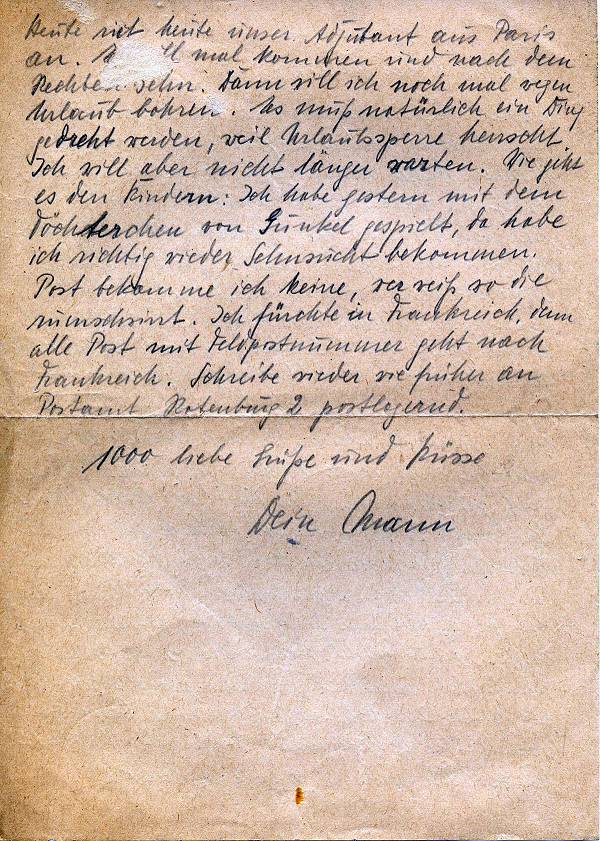 Heute ruft heute unser Adjutant aus Paris
an. ll mal kommen und nach dem
Rechten sehn. Dann will ich noch mal wegen
Urlaub bohren. Es muß natürlich ein Ding
gedreht werden, weil Urlaubssperre herrscht.
Ich will aber nicht länger warten. Wie geht
es den Kindern: Ich habe gestern mit dem
Töchterchen von Gunkel gespielt, da habe
ich richtig wieder Sehnsucht bekommen.
Post bekomme ich keine, wer weiß wo die
rumschwirrt. Ich fürchte in Frankreich, denn
alle Post mit Feldpostnummer geht nach
Frankreich. Schreibe wieder wie früher an
Postamt Rotenburg 2 postlagernd.
1000 liebe Grüße und Küsse
Dein Mann